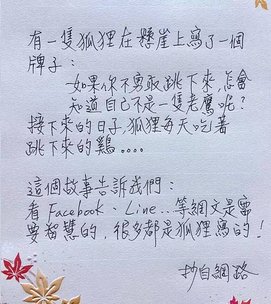 有一隻狐狸在懸崖上寫了一個
牌子：
如果你不勇敢跳下來,怎會
知道自己不是一隻老鷹呢？
接下來的日子,狐狸每天吃著
跳下來的雞....
這個故事告訴我們：
看Facebook、Line...等網文是需
要智慧的，很多都是狐狸寫的！
抄自網路